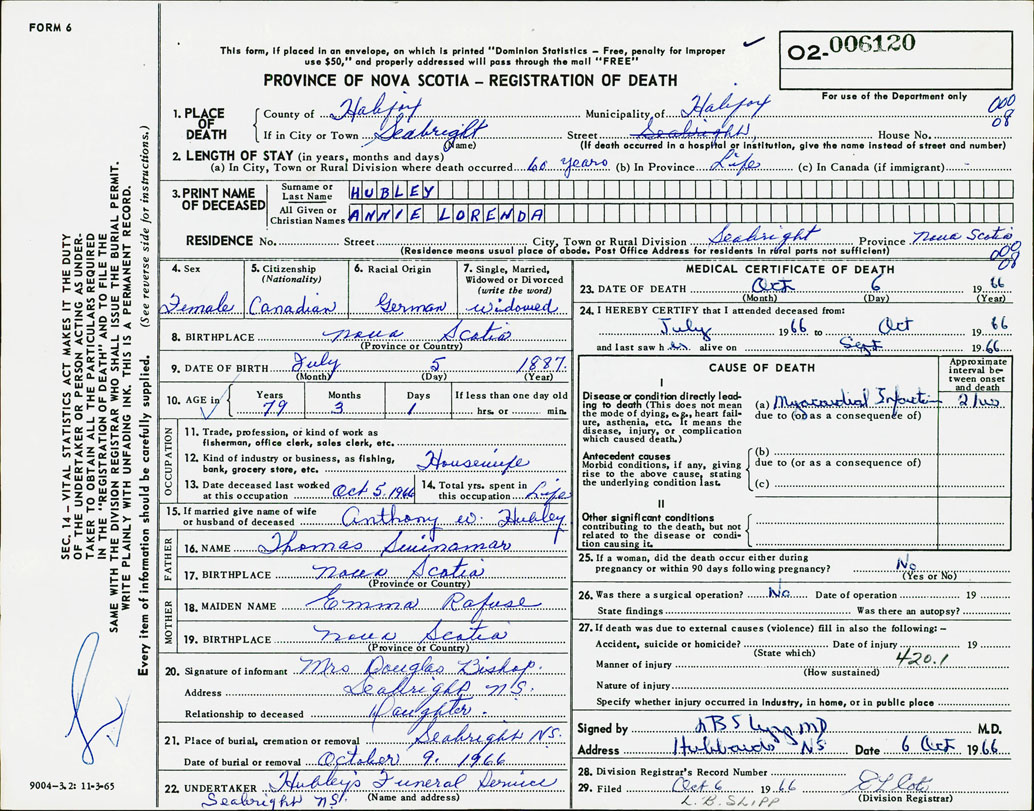 FORM 6
This form, if placed in an envelope, on which is printed "Dominion Statistics – Free, penalty for improper
use $50," and properly addressed will pass through the mail "FREE"
O2-006120
PROVINCE OF NOVA SCOTIA – REGISTRATION OF DEATH
For use of the Department only
1. PLACE OF DEATH
County of Halifax Municipality of Halifax 000 08
If in City or Town Seabright Street Seabright House No.
(Name) (If death occurred in a hospital or institution, give the name instead of street and number)
2. LENGTH OF STAY (in years, months and days)
(a) In City, Town or Rural Division where death occurred 60 years (b) In Province Life (c) In Canada (if immigrant) -
3. PRINT NAME OF DECEASED
Surname or Last Name HUBLEY
All Given or Christian Names ANNIE LORENDA
RESIDENCE No. Street City, Town or Rural Division Seabright Province Nova Scotia
(Residence means usual place of abode. Post Office Address for residents in rural parts not sufficient)
000 08
4. Sex Female
5. Citizenship (Nationality) Canadian
6. Racial Origin German
7. Single, Married, Widowed or Divorced (write the word) Widowed
8. BIRTHPLACE Nova Scotia
(Province or Country)
9. DATE OF BIRTH July 5 1887.
(Month) (Day) (Year)
10. AGE in Years 79 Months 3 Days 1 If less than one day old hrs. or min.
OCCUPATION
11. Trade, profession, or kind of work as
fisherman, office clerk, sales clerk, etc.
12. Kind of industry or business, as fishing,
bank, grocery store, etc. Housewife
13. Date deceased last worked
at this occupation Oct 5. 1966
14. Total yrs. spent in
this occupation Life
15. If married give name of wife
or husband of deceased Anthony W. Hubley
FATHER
16. NAME Thomas Swinamar
17. BIRTHPLACE Nova Scotia
(Province or Country)
MOTHER
18. MAIDEN NAME Emma Rafuse
19. BIRTHPLACE Nova Scotia
(Province or Country)
20. Signature of informant Mrs Douglas Bishop.
Address Seabright N.S.
Relationship to deceased Daughter.
21. Place of burial, cremation or removal Seabright N.S.
Date of burial or removal October 9. 1966
22. UNDERTAKER Hubley's Funeral Service
Seabright N.S. (Name and address)
MEDICAL CERTIFICATE OF DEATH
23. DATE OF DEATH Oct 6 1966
(Month) (Day) (Year)
24. I HEREBY CERTIFY that I attended deceased from:
July 1966 to Oct 1966
and last saw her alive on Sept 1966
CAUSE OF DEATH
Approximate interval between onset and death
I
Disease or condition directly leading
to death (This does not mean
the mode of dying, e.g., heart failure,
asthenia, etc. It means the
disease, injury, or complication
which caused death.)
(a) Myocardial Infarction
due to (or as a consequence of)
Antecedent causes
Morbid conditions, if any, giving
rise to the above cause, stating
the underlying condition last.
(b)
due to (or as a consequence of)
(c)
II
Other significant conditions
contributing to the death, but not
related to the disease or condition
causing it.
25. If a woman, did the death occur either during
pregnancy or within 90 days following pregnancy? No
(Yes or No)
26. Was there a surgical operation? No Date of operation 19
State findings Was there an autopsy?
27. If death was due to external causes (violence) fill in also the following:–
Accident, suicide or homicide? Date of injury 19
(State which)
Manner of injury 420.1
(How sustained)
Nature of injury
Specify whether injury occurred in industry, in home, or in public place
Signed by M.D.
Address Hubbards NS Date 6 Oct 1966
28. Division Registrar's Record Number
29. Filed Oct 6 1966
L. B. SLIPP (Division Registrar)
SEC. 14 – VITAL STATISTICS ACT MAKES IT THE DUTY
OF THE UNDERTAKER OR PERSON ACTING AS UNDERTAKER
TO OBTAIN ALL THE PARTICULARS REQUIRED
IN THE "REGISTRATION OF DEATH" AND TO FILE THE
SAME WITH THE DIVISION REGISTRAR WHO SHALL ISSUE THE BURIAL PERMIT.
WRITE PLAINLY WITH UNFADING INK. THIS IS A PERMANENT RECORD.
Every item of information should be carefully supplied. (See reverse side for instructions.)
9004–3.2: 11-3-65